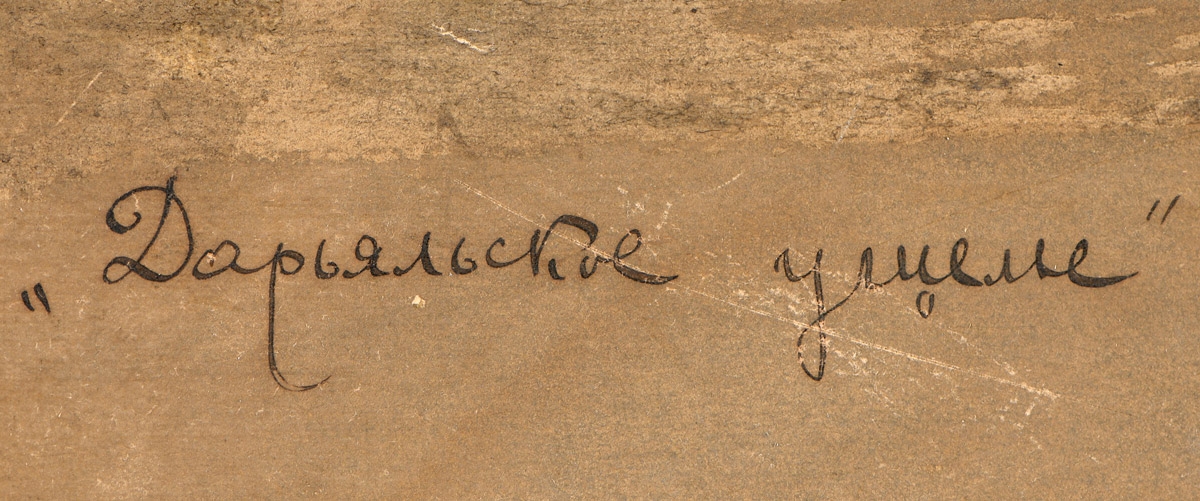 „Дарьяльское ущелье"